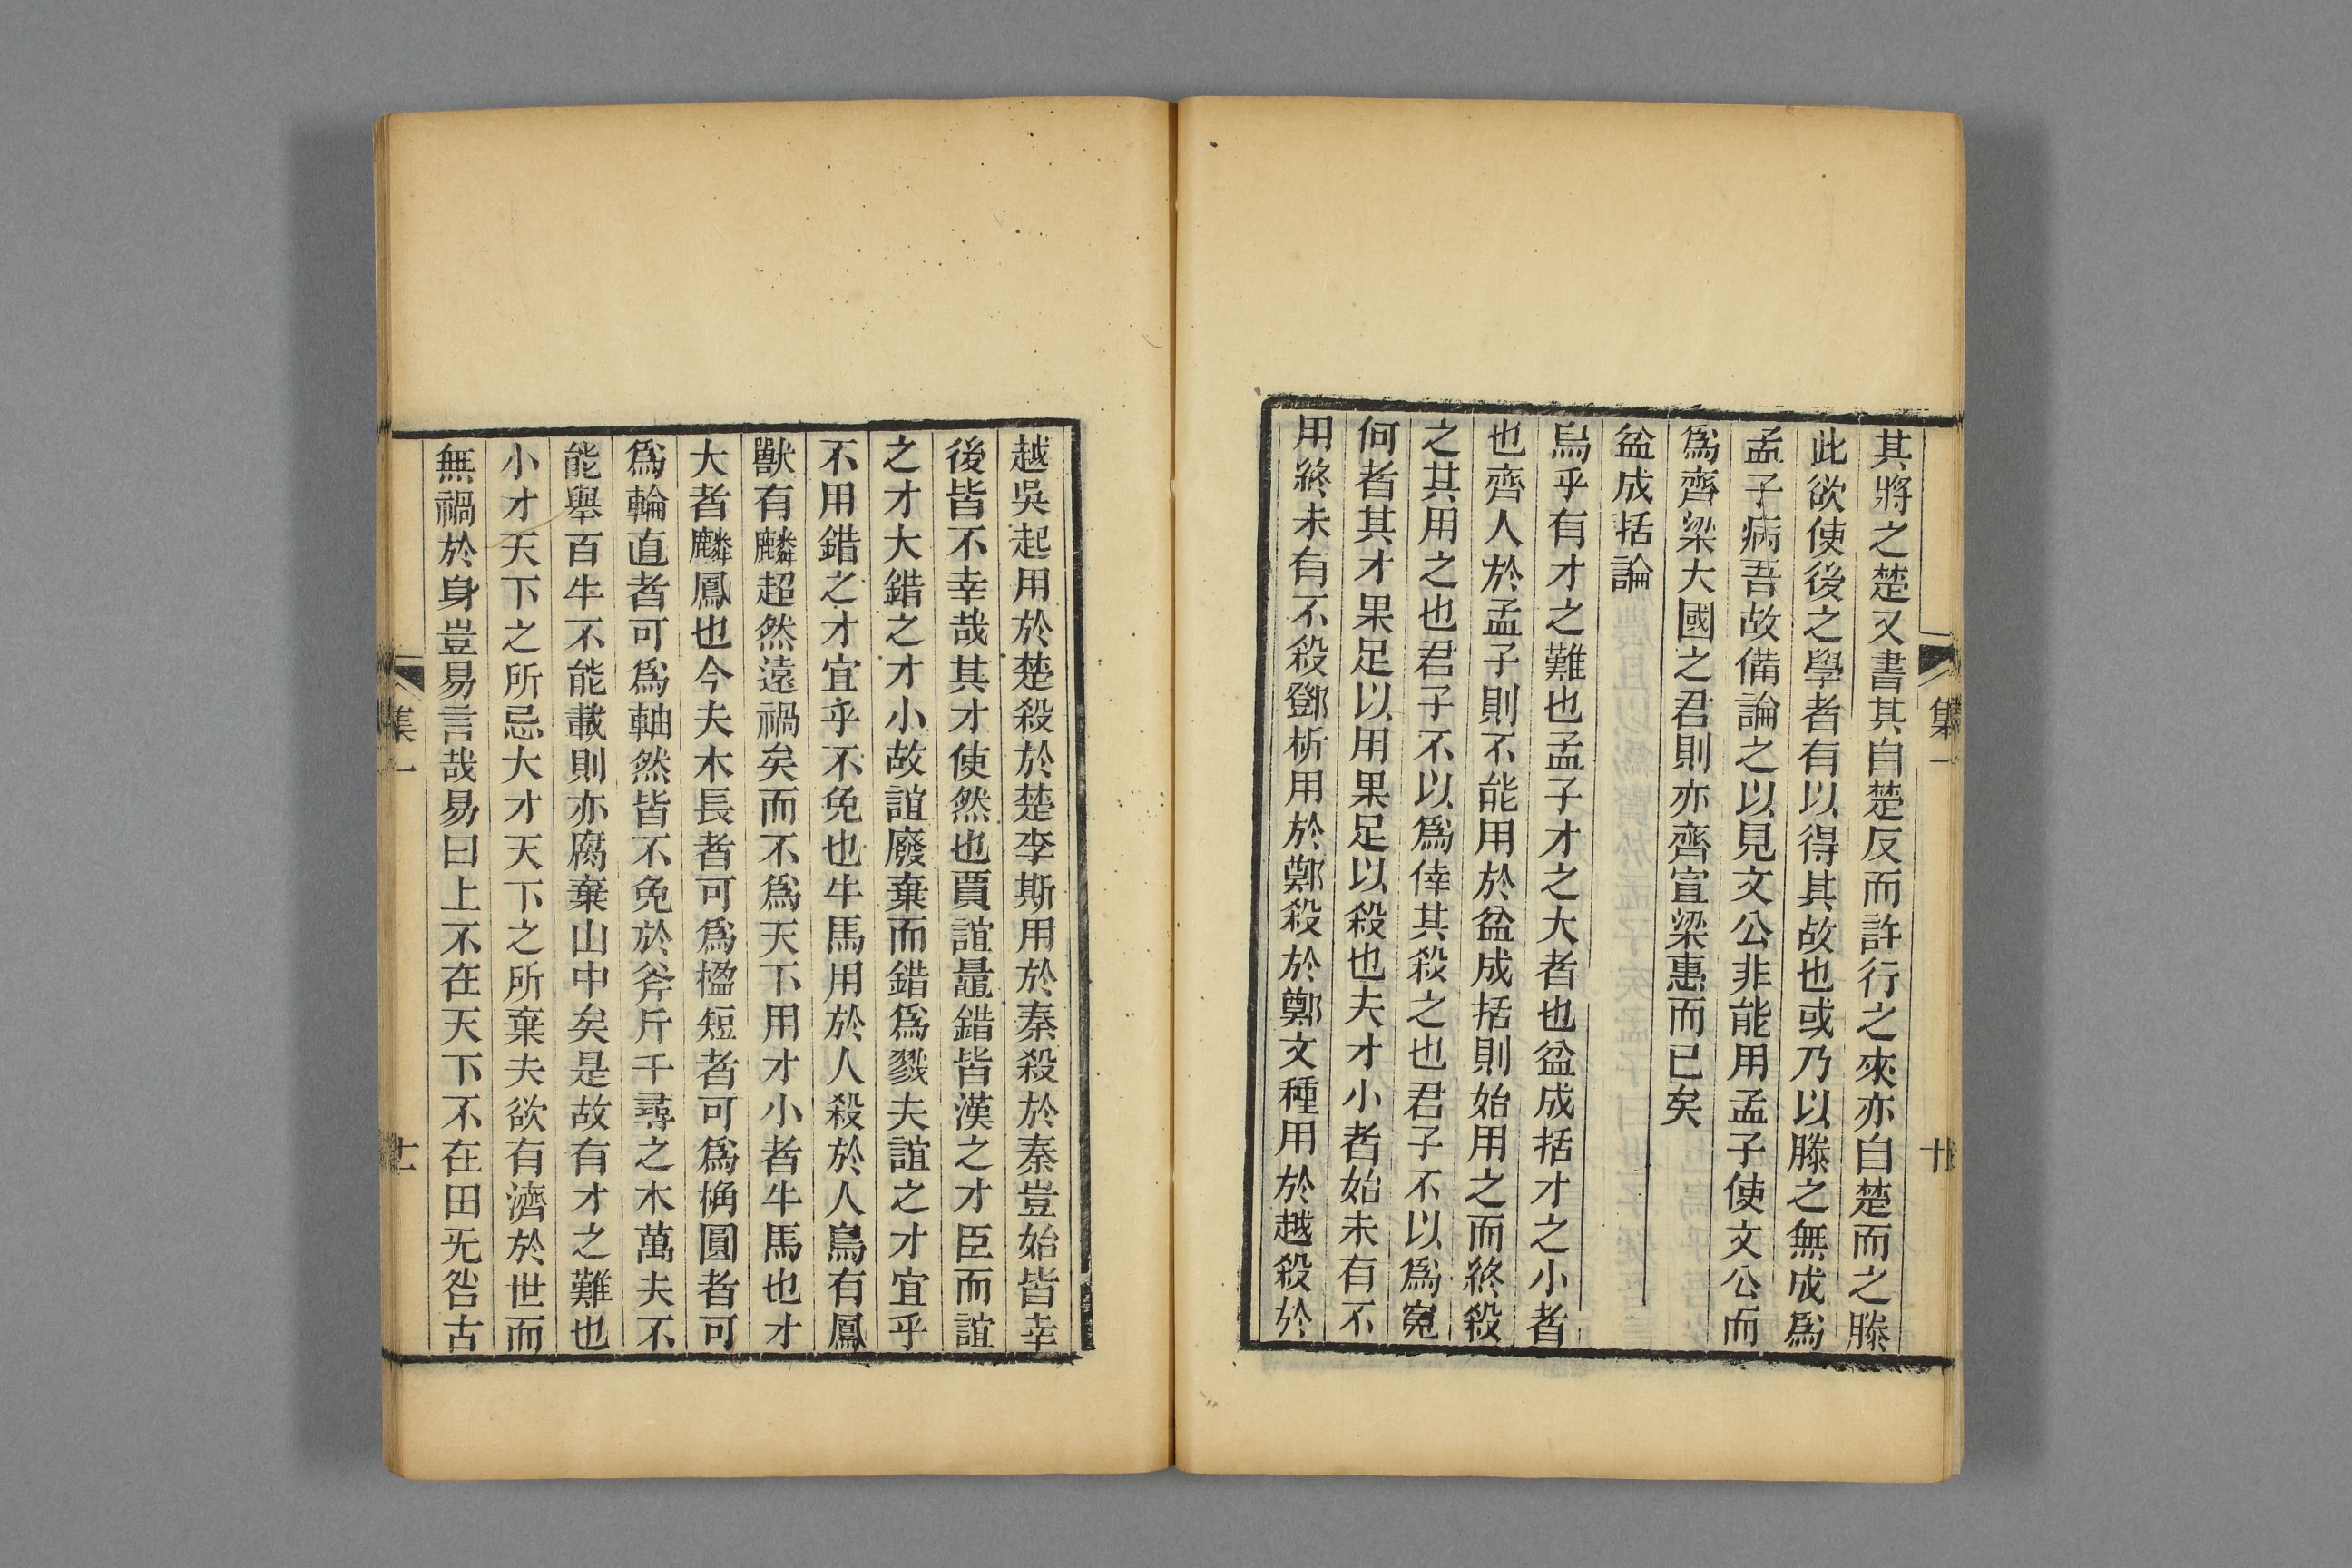 其將之楚又書其自楚反而許行之來亦自楚而之滕
此欲使後之學者有以得其故也或乃以滕之無成爲
孟子病吾故備論之以見文公非能用孟子使文公而
爲齊梁大國之君則亦齊宣梁惠而已矣
盆成括論
烏乎有才之難也孟子才之大者也盆成括才之小者
也齊人於孟子則不能用於盆成括則始用之而終殺
之其用之也君子不以爲倖其殺之也君子不以爲寃
何者其才果足以用果足以殺也夫才小者始未有不
用終未有不殺鄧析用於鄭殺於鄭文種用於越殺於
越吳起用於楚殺於楚李斯用於秦殺於秦豈始皆幸
後皆不幸哉其才使然也賈誼鼂錯皆漢之才臣而誼
之才大錯之才小故誼廢棄而錯爲戮夫誼之才宜乎
不用錯之才宜乎不免也牛馬用於人殺於人鳥有鳳
獸有麟超然遠禍矣而不爲天下用才小者牛馬也才
大者麟鳳也今夫木長者可爲楹短者可爲桷圓者可
爲輪直者可爲軸然皆不免於斧斤千尋之木萬夫不
能舉百牛不能載則亦腐棄山中矣是故有才之難也
小才天下之所忌大才天下之所棄夫欲有濟於世而
無禍於身豈易言哉易曰上不在天下不在田无咎古
集一
十
集一